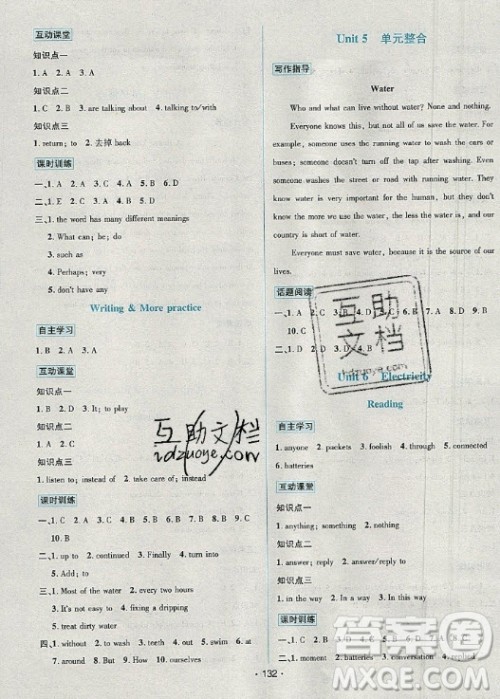 互动课堂
知识点一
1. A  2. A  3. A
知识点二
1. C  2. B  3. are talking about  4. talking to/with
知识点三
1. return; to  2. 去掉 back
课时训练
一、1. A  2. A  3. B  4. C  5. A
二、1. A  2. D  3. C  4. B  5. B  6. D
三、1. the word has many different meanings
2. What can; be; do
3. such as
4. Perhaps; very
5. don't have any
Writing & More practice
自主学习
1. B  2. A  3. D
互动课堂
知识点一
1. A  2. D  3. It; to play
知识点二
1. C  2. A  3. D
知识点三
1. listen to; instead of  2. take care of; instead
课时训练
10. B
二、1. up to  2. continued  3. Finally  4. turn into
5. Add; to
三、1. Most of the water  2. every two hours
3. not to  4. fixing a dripping
5. treat dirty water
四、1. without  2. with  3. was  4. started  5. or  6. at
7. around  8. But  9. How  10. ourselves
Unit 5 单元整合
写作指导
Water
Who and what can live without water? None and nothing.
Everyone knows this, but not all of us save the water. For
example, someone uses the running water to wash the cars or
buses; someone doesn't turn off the tap after washing. Even
someone washes the street or road with running water. Everyone
know water is very important for the human, but they don't
know the more we use water, the less water is, and our
country is short of water.
Everyone must save water, because it is the source of our
lives.
话题阅读
10. C
Unit 6 Electricity
Reading
自主学习
1. anyone  2. packets  3. foolish  4. through  5. connected
6. batteries
互动课堂
知识点一
1. anything; something  2. nothing
知识点二
1. reply  2. answer  3. answer/reply to
知识点三
1. in a way  2. By the way  3. In this way
课时训练
一、1. moment  2. batteries  3. conversation  4. replied
·132·
互助文档
idzuoye.com
互助文档
idzuoye.com
答案圈
MXQE.COM